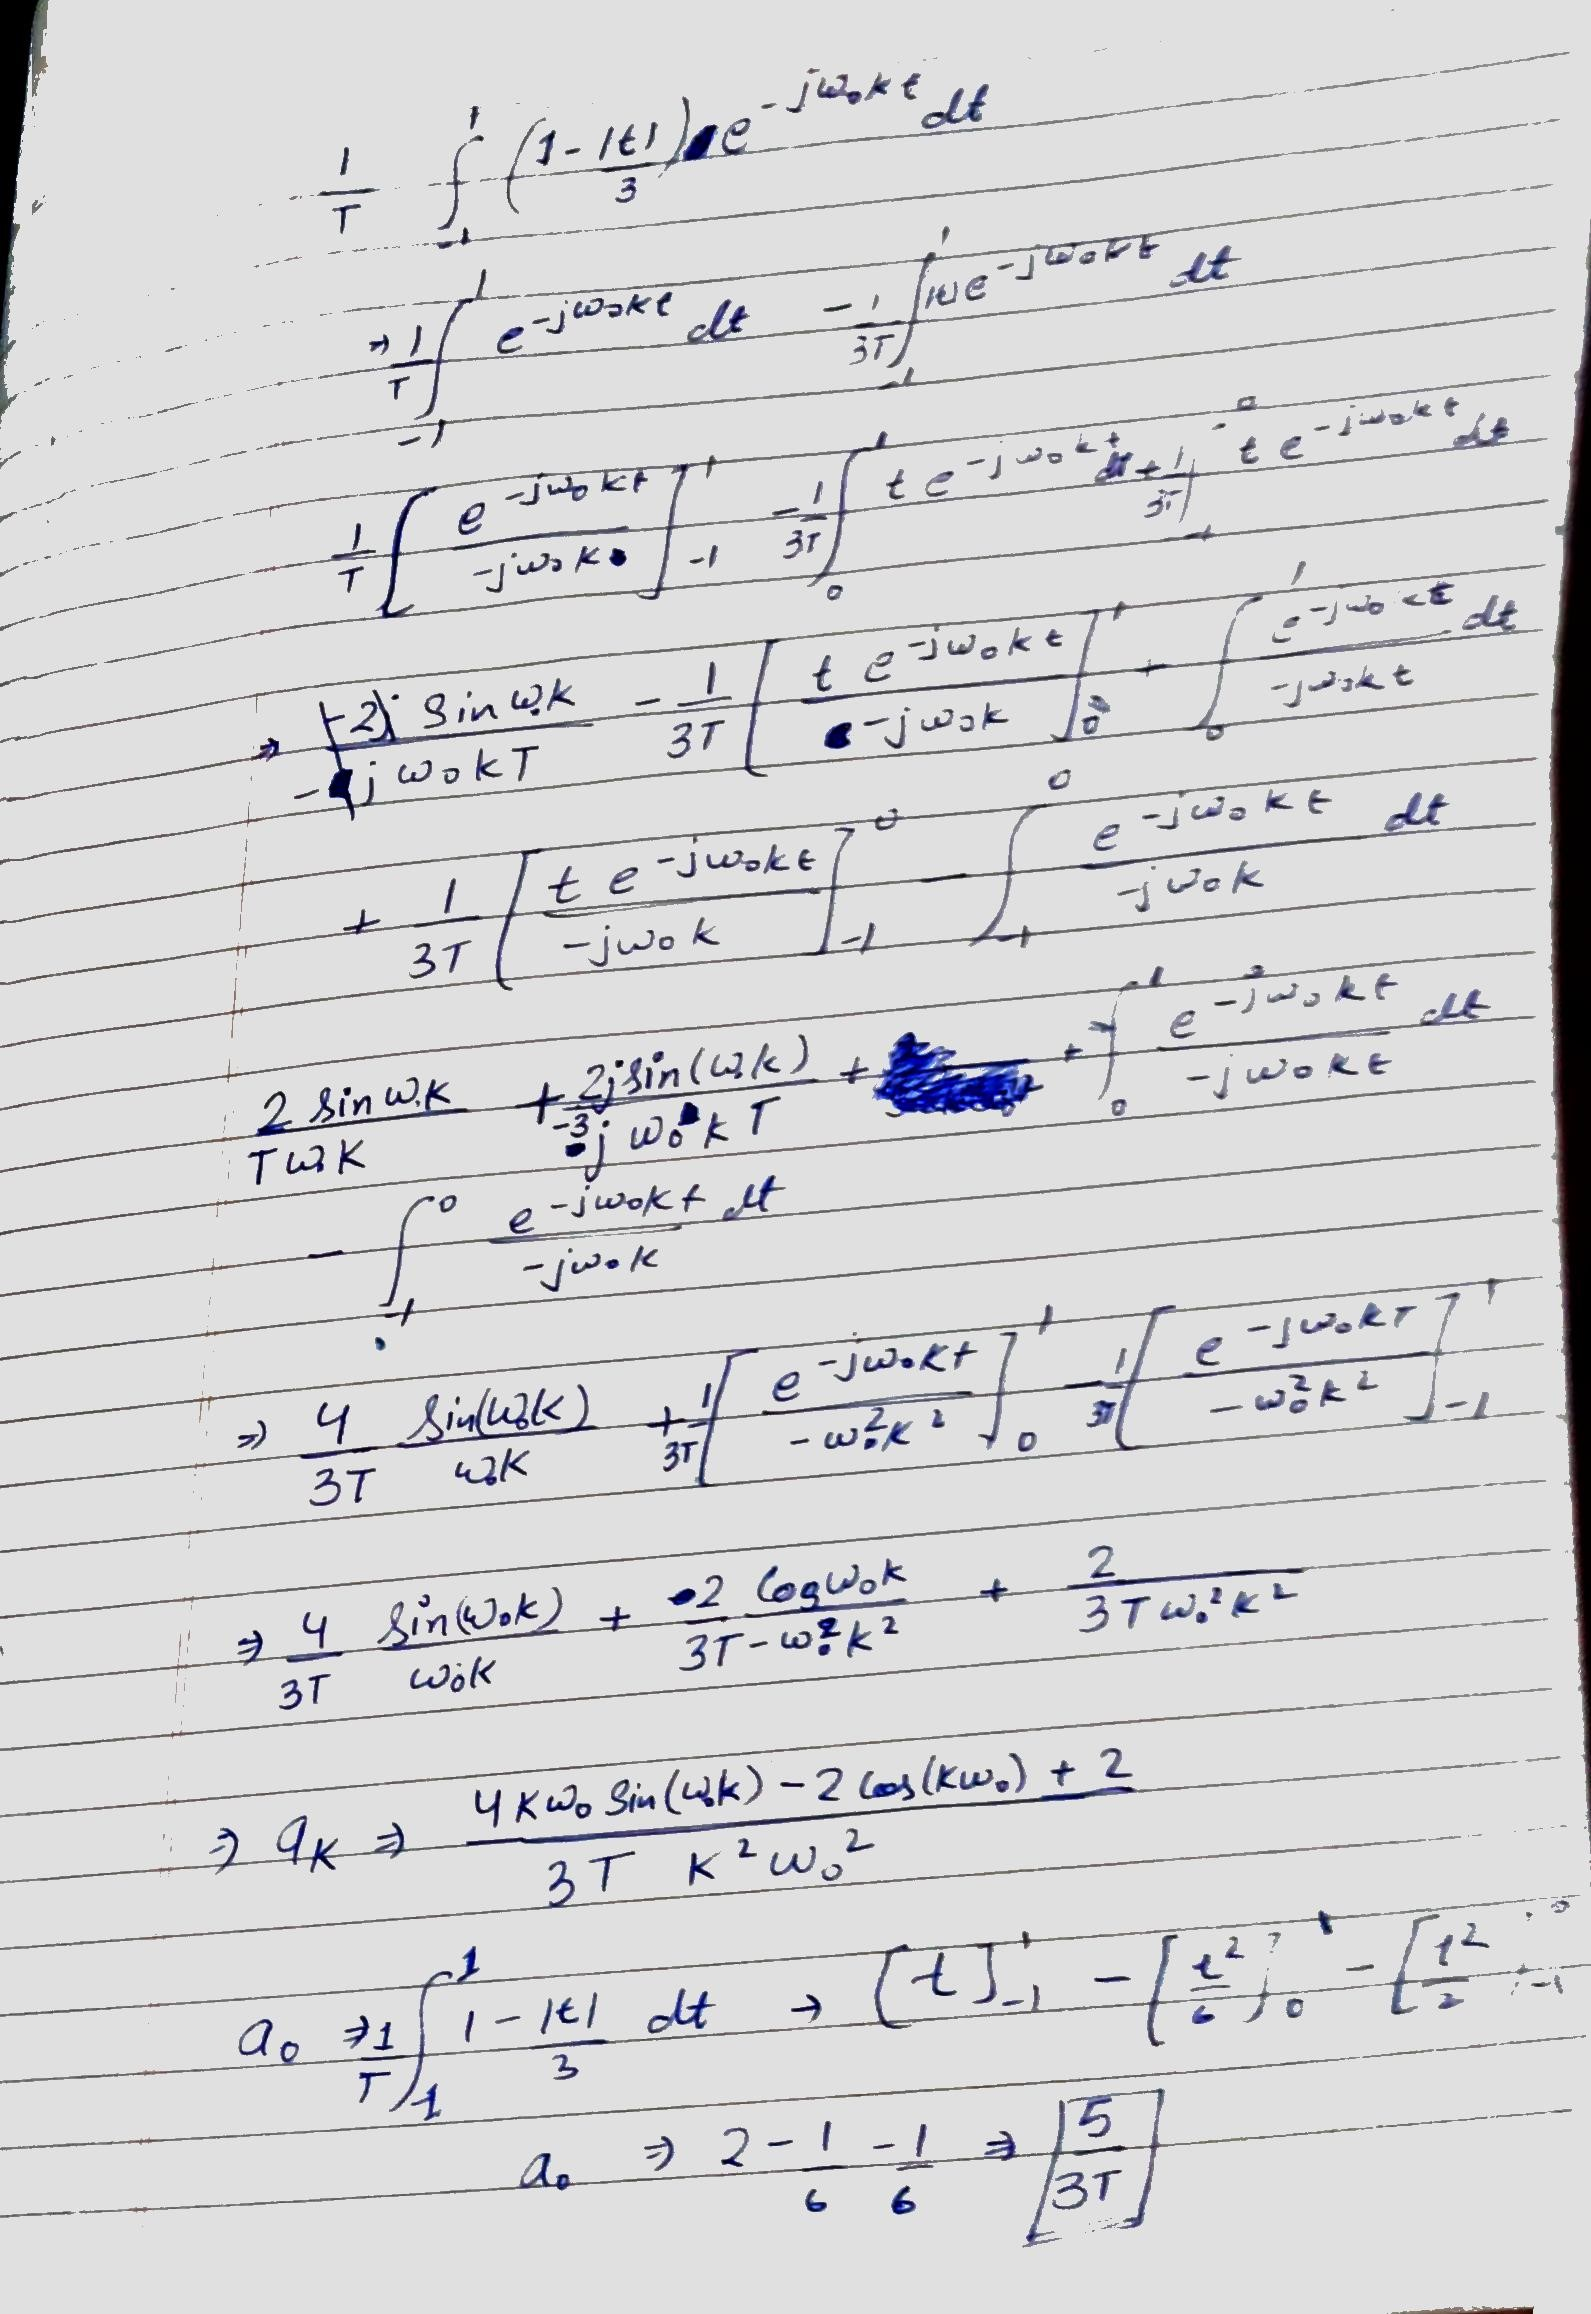 1/T ∫_{-1}^{1} (1 - |t|/3) e^{-jω₀kt} dt
⇒ 1/T ∫_{-1}^{1} e^{-jω₀kt} dt - 1/3T ∫_{-1}^{1} |t| e^{-jω₀kt} dt
1/T [e^{-jω₀kt} / -jω₀k]_{-1}^{1} - 1/3T ∫_{0}^{1} t e^{-jω₀kt} dt + 1/3T ∫_{-1}^{0} t e^{-jω₀kt} dt
⇒ (-2)j sin ω₀k / -jω₀kT - 1/3T [t e^{-jω₀kt} / -jω₀k]_{0}^{1} + ∫_{0}^{1} e^{-jω₀kt} / -jω₀kt dt
+ 1/3T [t e^{-jω₀kt} / -jω₀k]_{-1}^{0} - ∫_{-1}^{0} e^{-jω₀kt} / -jω₀k dt
2 sin ω₀k / Tω₀k + 2j sin(ω₀k) / -3jω₀kT + + ∫_{0}^{1} e^{-jω₀kt} / -jω₀kt dt
- ∫_{-1}^{0} e^{-jω₀kt} dt / -jω₀k
⇒ 4/3T sin(ω₀k)/ω₀k + 1/3T [e^{-jω₀kt} / -ω₀²k²]_{0}^{1} - 1/3T [e^{-jω₀kT} / -ω₀²k²]_{-1}^{1}
⇒ 4/3T sin(ω₀k)/ω₀k + 2 cos ω₀k / 3T - ω₀²k² + 2 / 3Tω₀²k²
⇒ a_k ⇒ 4kω₀ sin(ω₀k) - 2 cos(kω₀) + 2 / 3T k²ω₀²
a₀ ⇒ 1/T ∫_{-1}^{1} 1 - |t|/3 dt → [t]_{-1}^{1} - [t²/6]_{0}^{1} - [t²/2]_{-1}^{0}
a₀ ⇒ 2 - 1/6 - 1/6 ⇒ [5/3T]